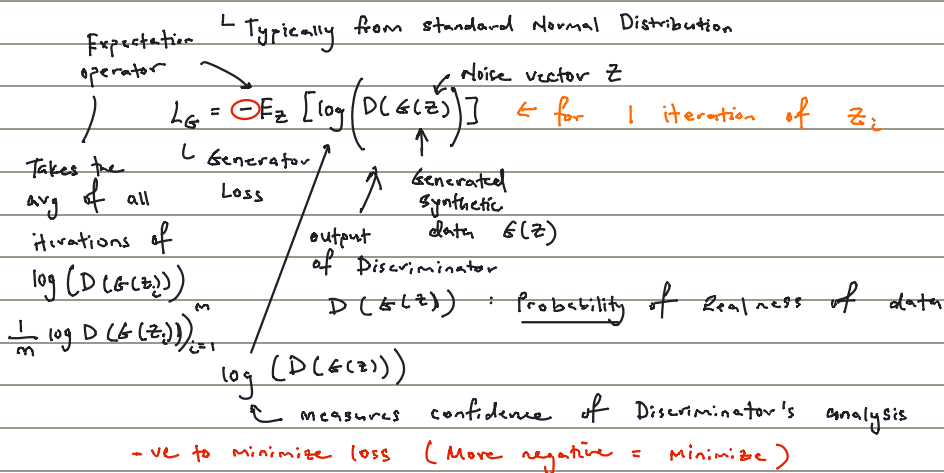 └ Typically from standard Normal Distribution
Expectation
operator
Noise vector Z
L_G = -E_Z [log(D(G(Z))] ← for 1 iteration of Z_i
└ Generator
Loss
Takes the
avg of all
iterations of
log(D(G(Z_i))
1/m log D(G(Z_i)))_{i=1}^m
Generated
synthetic
data G(Z)
output
of Discriminator
D(G(Z)) : Probability of Realness of data
log(D(G(Z)))
measures confidence of Discriminator's analysis
-ve to minimize loss (More negative = minimize)